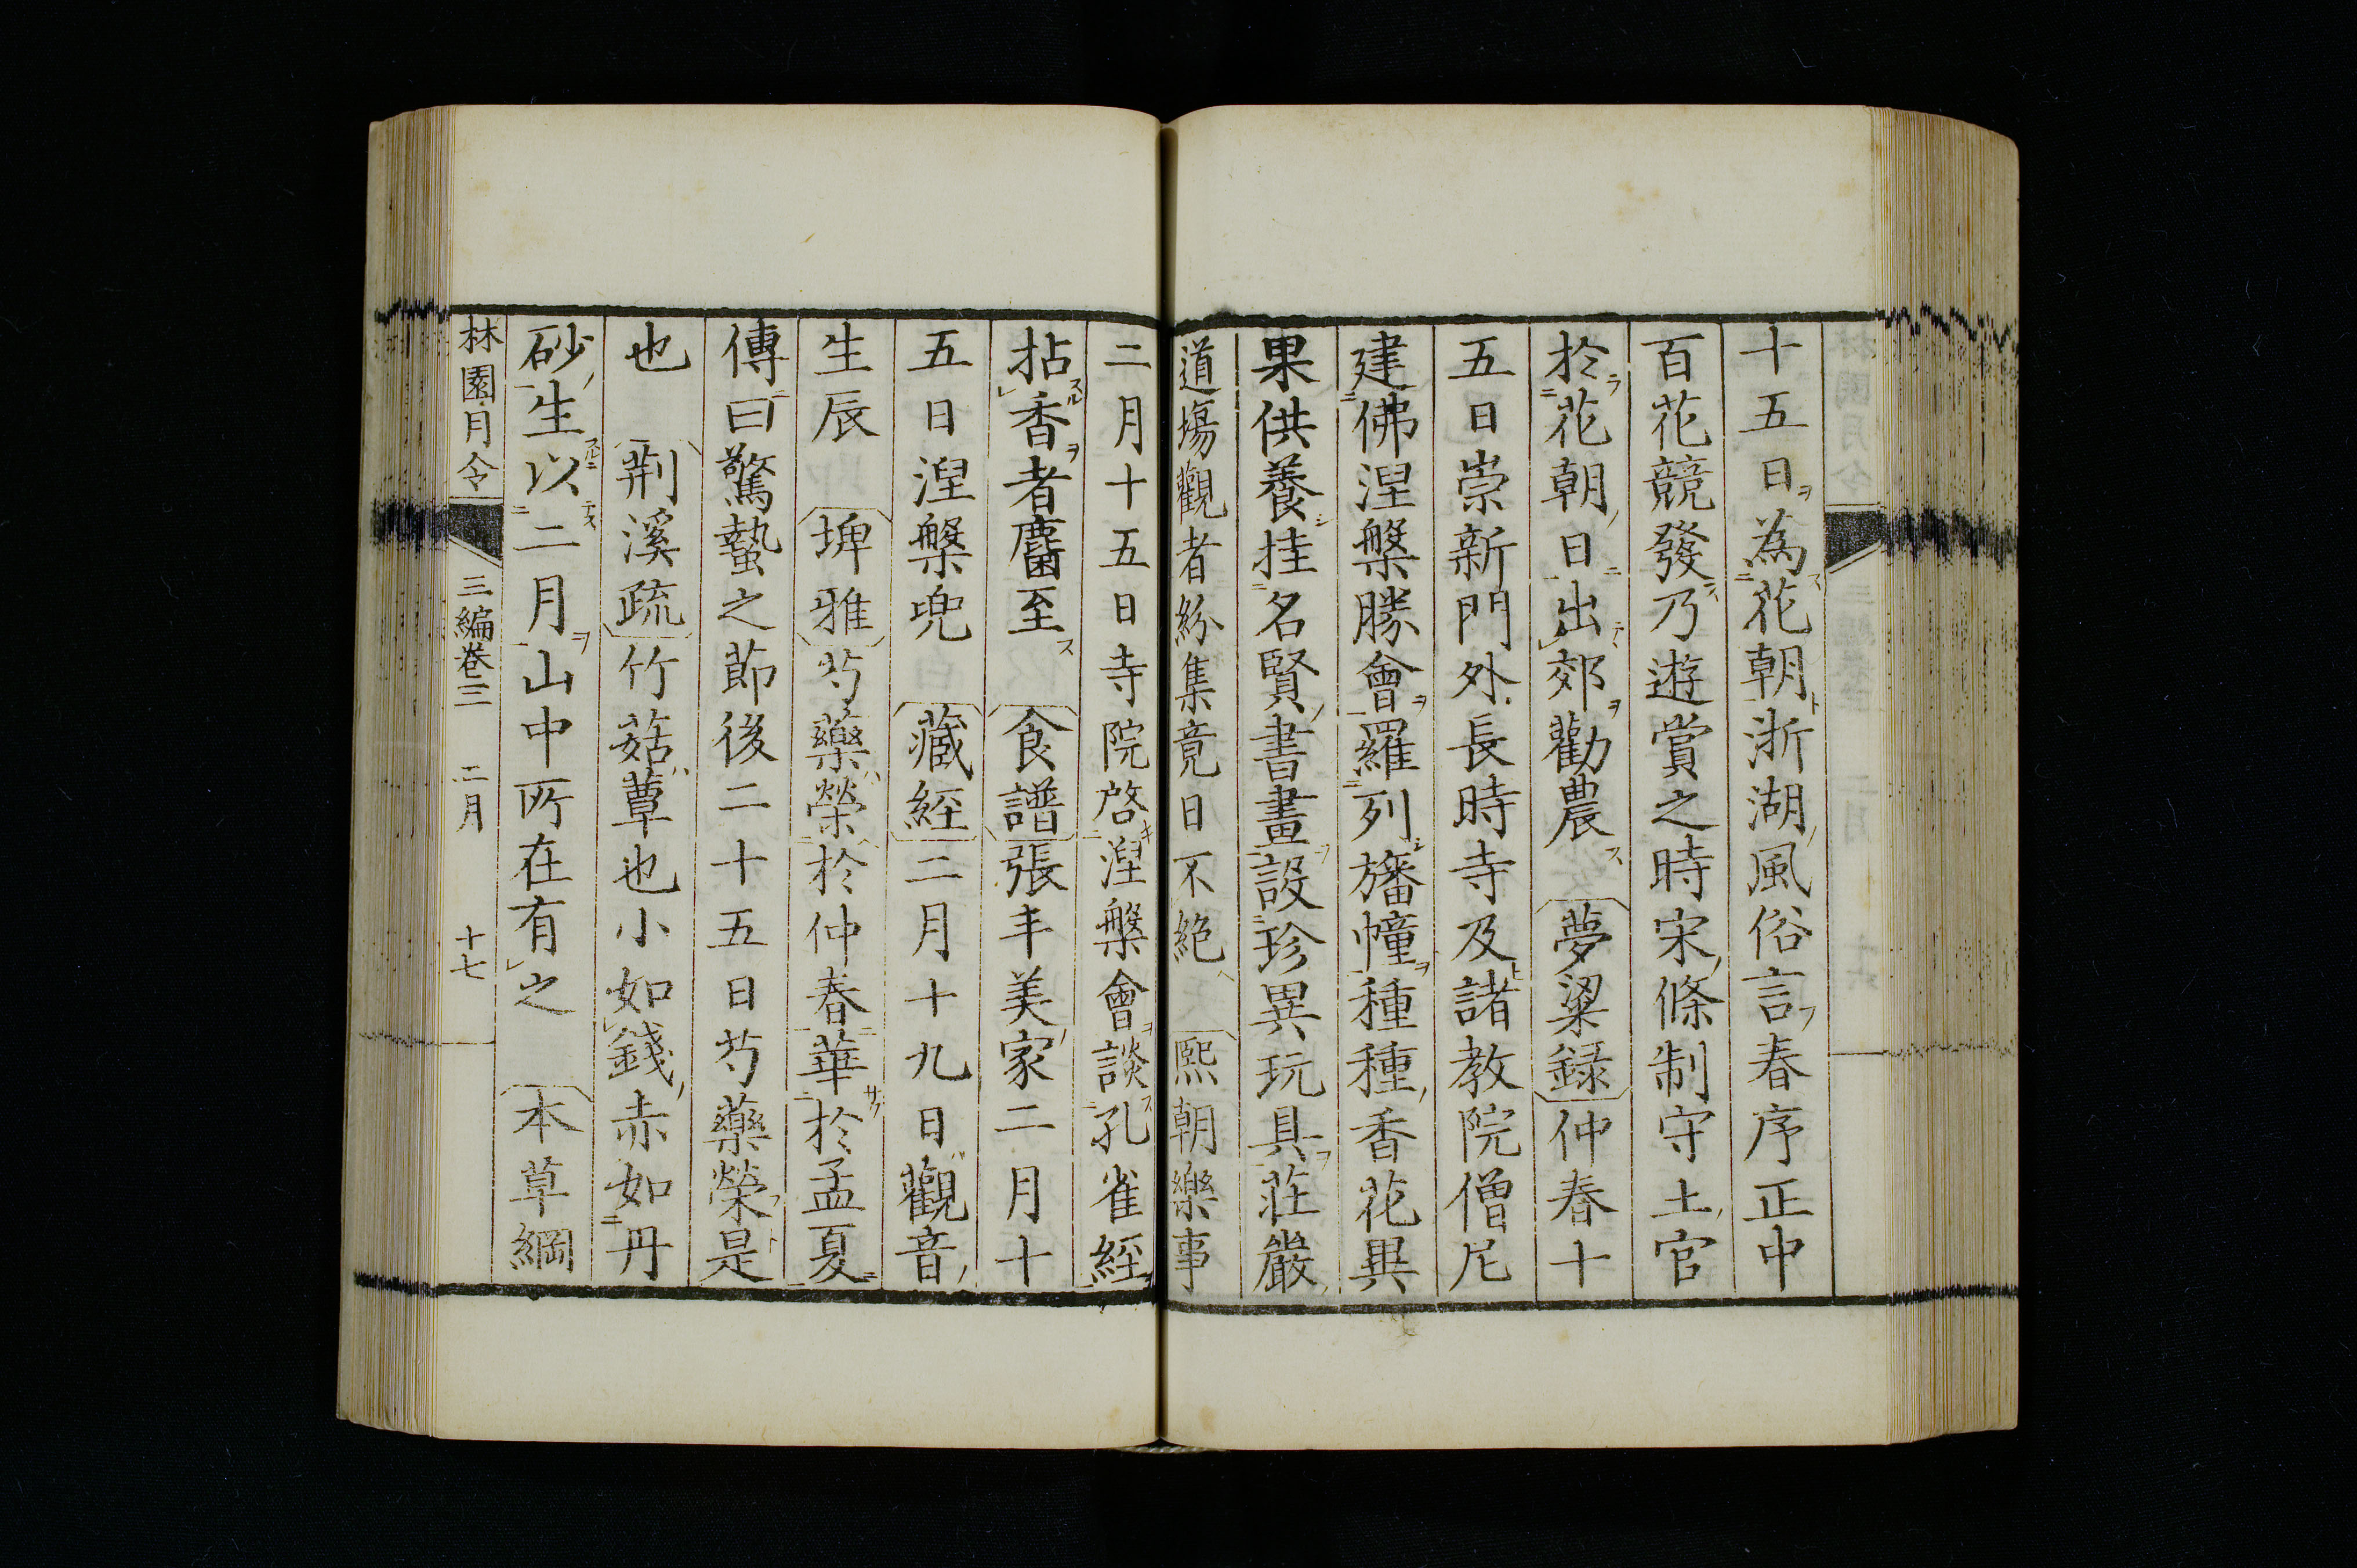 十五日為花朝浙湖風俗言春序正中
百花競發乃遊賞之時宋條制守土官
於花朝日出郊勸農〔夢粱録〕仲春十
五日崇新門外長時寺及諸教院僧尼
建佛涅槃勝會羅列旛幢種種香花異
果供養挂名賢書畫設珍異玩具莊嚴
道塲觀者紛集竟日不絶〔熙朝樂事
二月十五日寺院啓涅槃會談孔雀經
拈香者麕至〔食譜〕張手美家二月十
五日涅槃兜〔藏経〕二月十九日觀音
生辰〔埤雅〕芍藥榮於仲春華於孟夏
傳曰驚蟄之節後二十五日芍藥榮是
也〔荊溪疏〕竹菇蕈也小如錢赤如丹
砂生以二月山中所在有之〔本草綱
林園月令 三編卷三 二月 十七